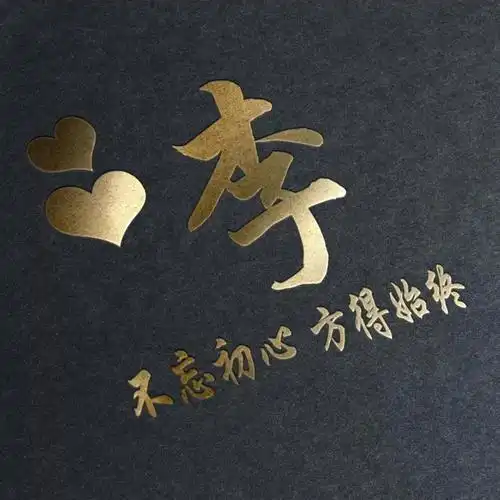 李
不忘初心 方得始终